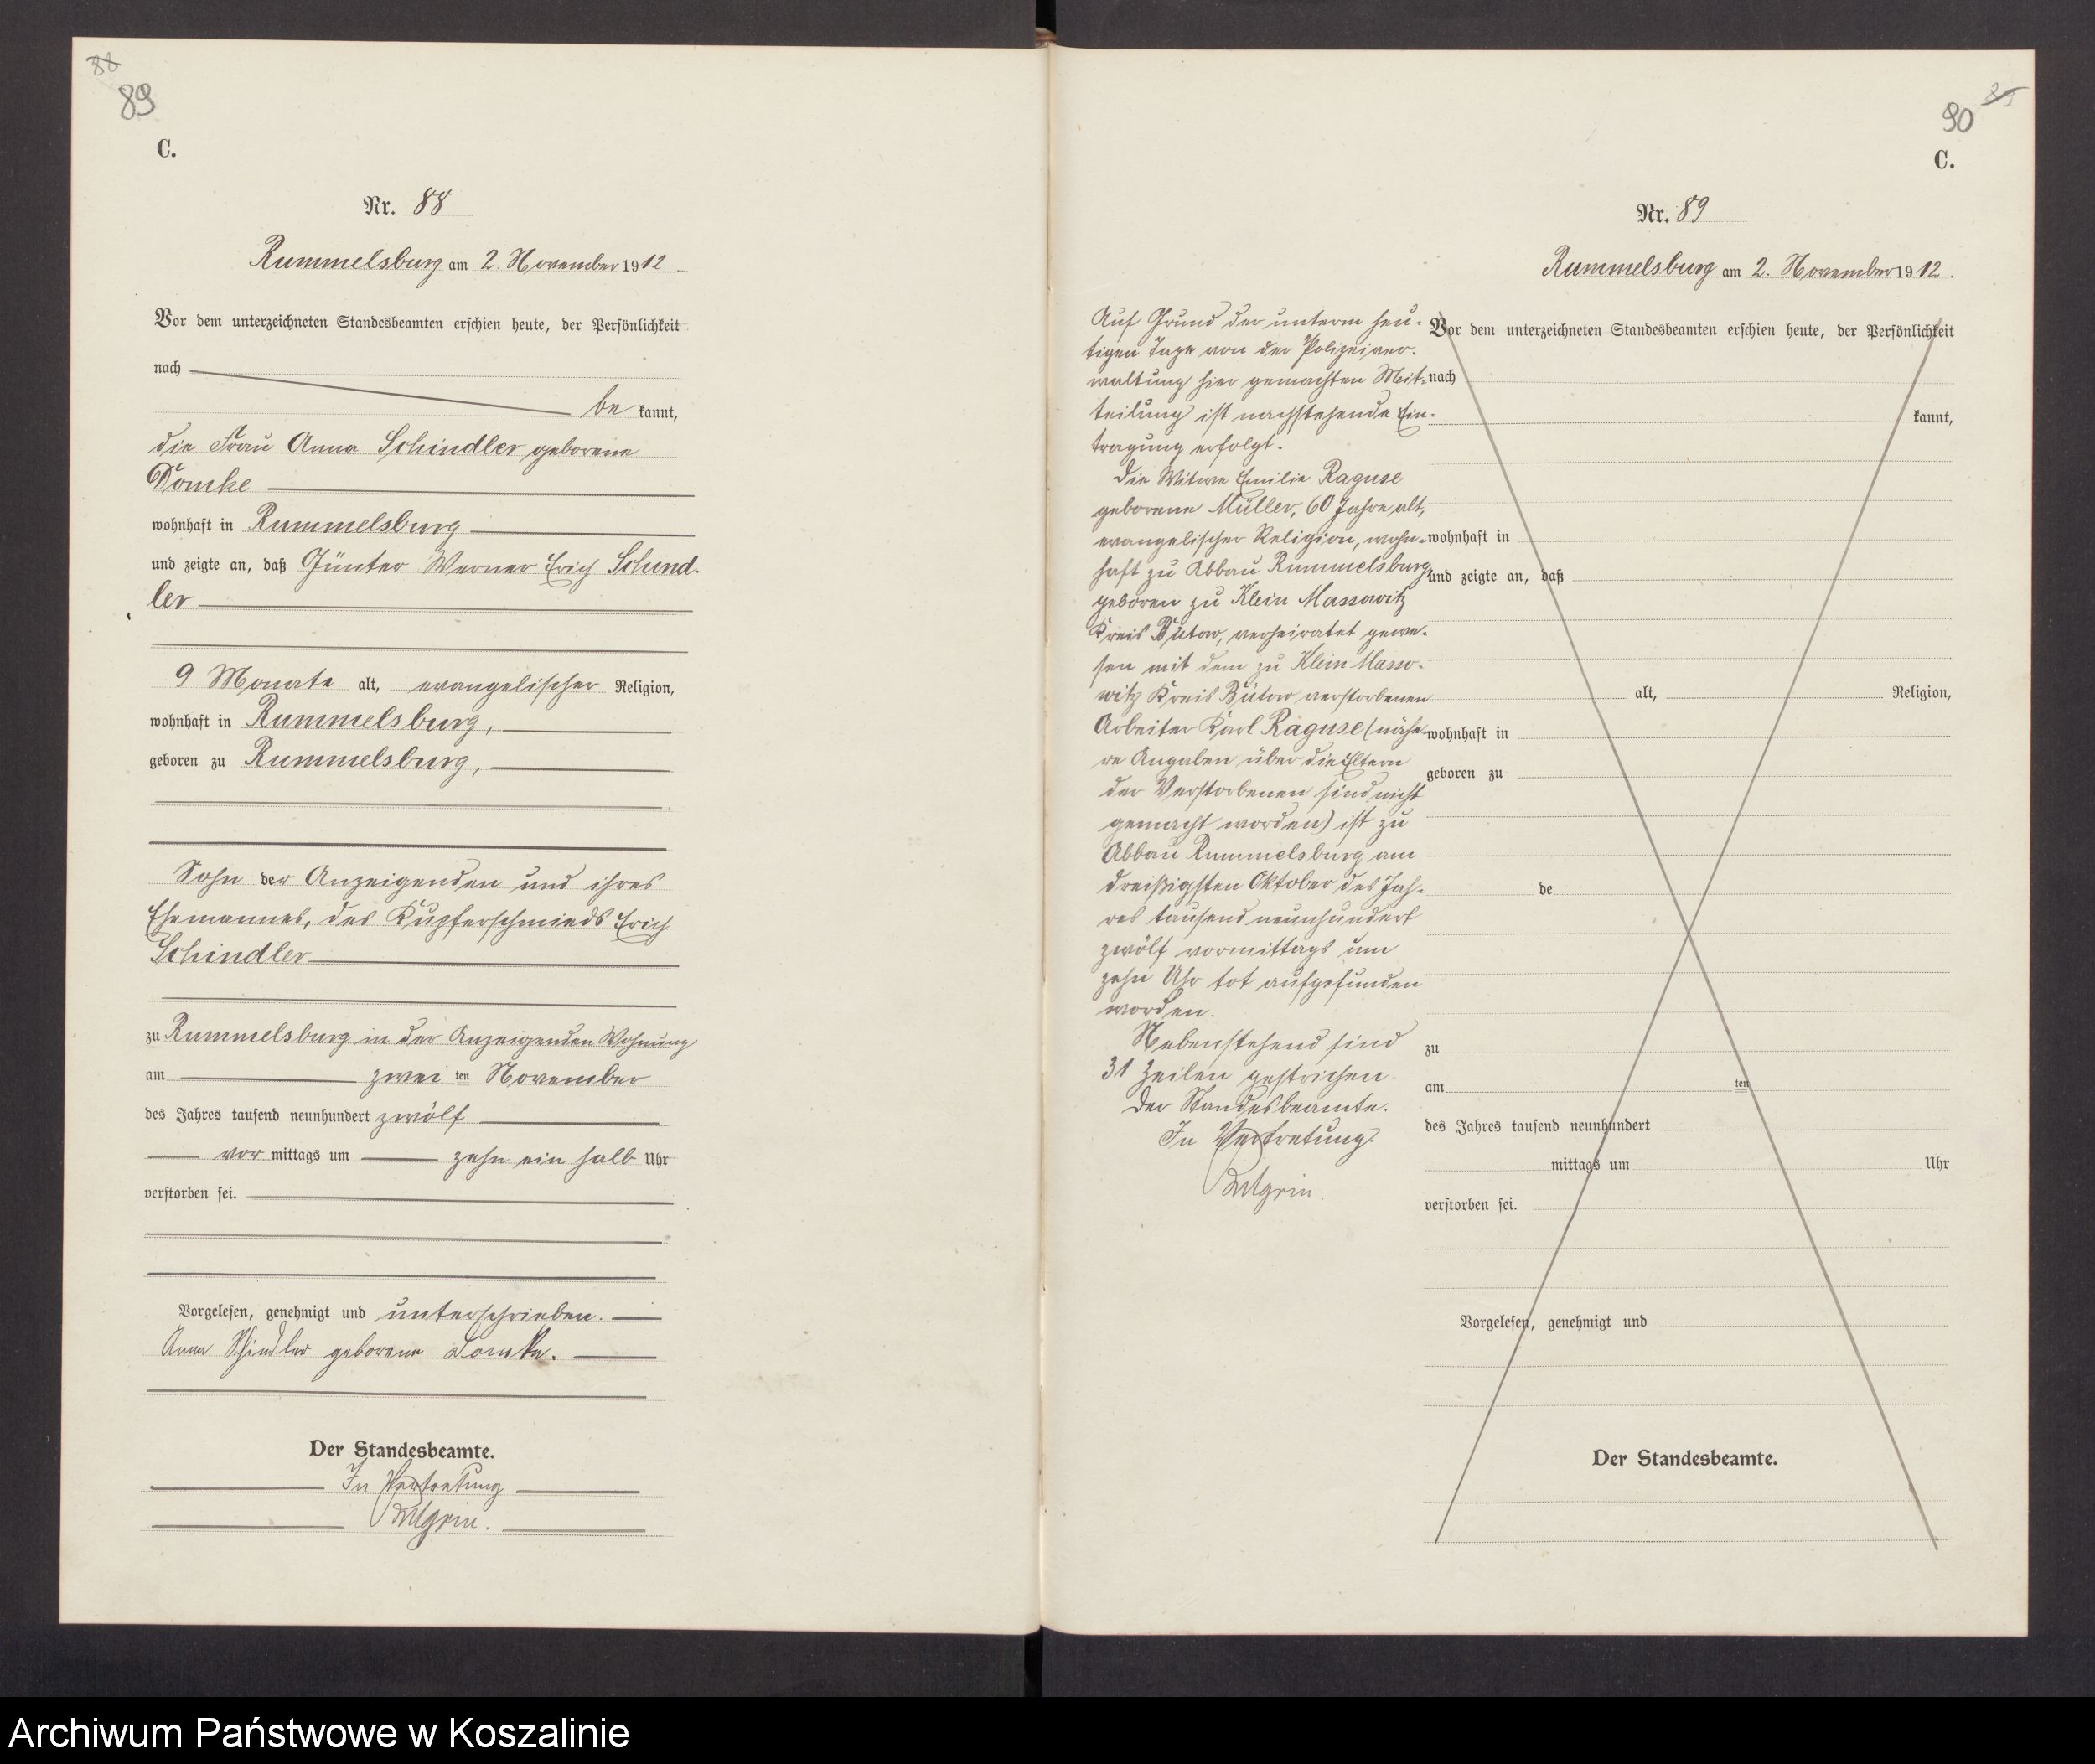 88
89
C.
Nr. 88
Rummelsburg am 2. November 1912
Vor dem unterzeichneten Standesbeamten erschien heute, der Persönlichkeit
nach
be kannt,
die Frau Anna Schindler geborene
Domke
wohnhaft in Rummelsburg
und zeigte an, daß Günter Werner Erich Schind-
ler
9 Monate alt, evangelischer Religion,
wohnhaft in Rummelsburg,
geboren zu Rummelsburg,
Sohn der Anzeigenden und ihres
Ehemannes, des Kupferschmieds Erich
Schindler
zu Rummelsburg in der Anzeigenden Wohnung
am zwei ten November
des Jahres tausend neunhundert zwölf
vor mittags um zehn ein halb Uhr
verstorben sei.
Vorgelesen, genehmigt und unterschrieben.
Anna Schindler geborene Domke.
Der Standesbeamte.
In Vertretung
89
90
C.
Nr. 89
Rummelsburg am 2. November 1912.
Auf Grund der unterm heu-
tigen Tage von der Polizeiver-
waltung hier gemachten Mit-
teilung ist nachstehende Ein-
tragung erfolgt.
Die Witwe Emilie Raguse
geborene Müller, 60 Jahre alt,
evangelischer Religion, wohn-
haft zu Abbau Rummelsburg
geboren zu Klein Massowitz
Kreis Bütow, verheiratet gewe-
sen mit dem zu Klein Masso-
witz Kreis Bütow verstorbenen
Arbeiter Karl Raguse (nähe-
re Angaben über die Eltern
der Verstorbenen sind nicht
gemacht worden) ist zu
Abbau Rummelsburg am
dreißigsten Oktober des Jah-
res tausend neunhundert
zwölf vormittags um
zehn Uhr tot aufgefunden
worden.
Nebenstehend sind
31 Zeilen gestrichen.
Der Standesbeamte.
In Vertretung.
Vor dem unterzeichneten Standesbeamten erschien heute, der Persönlichkeit
nach
kannt,
wohnhaft in
und zeigte an, daß
alt, Religion,
wohnhaft in
geboren zu
de
zu
am ten
des Jahres tausend neunhundert
mittags um Uhr
verstorben sei.
Vorgelesen, genehmigt und
Der Standesbeamte.
Archiwum Państwowe w Koszalinie